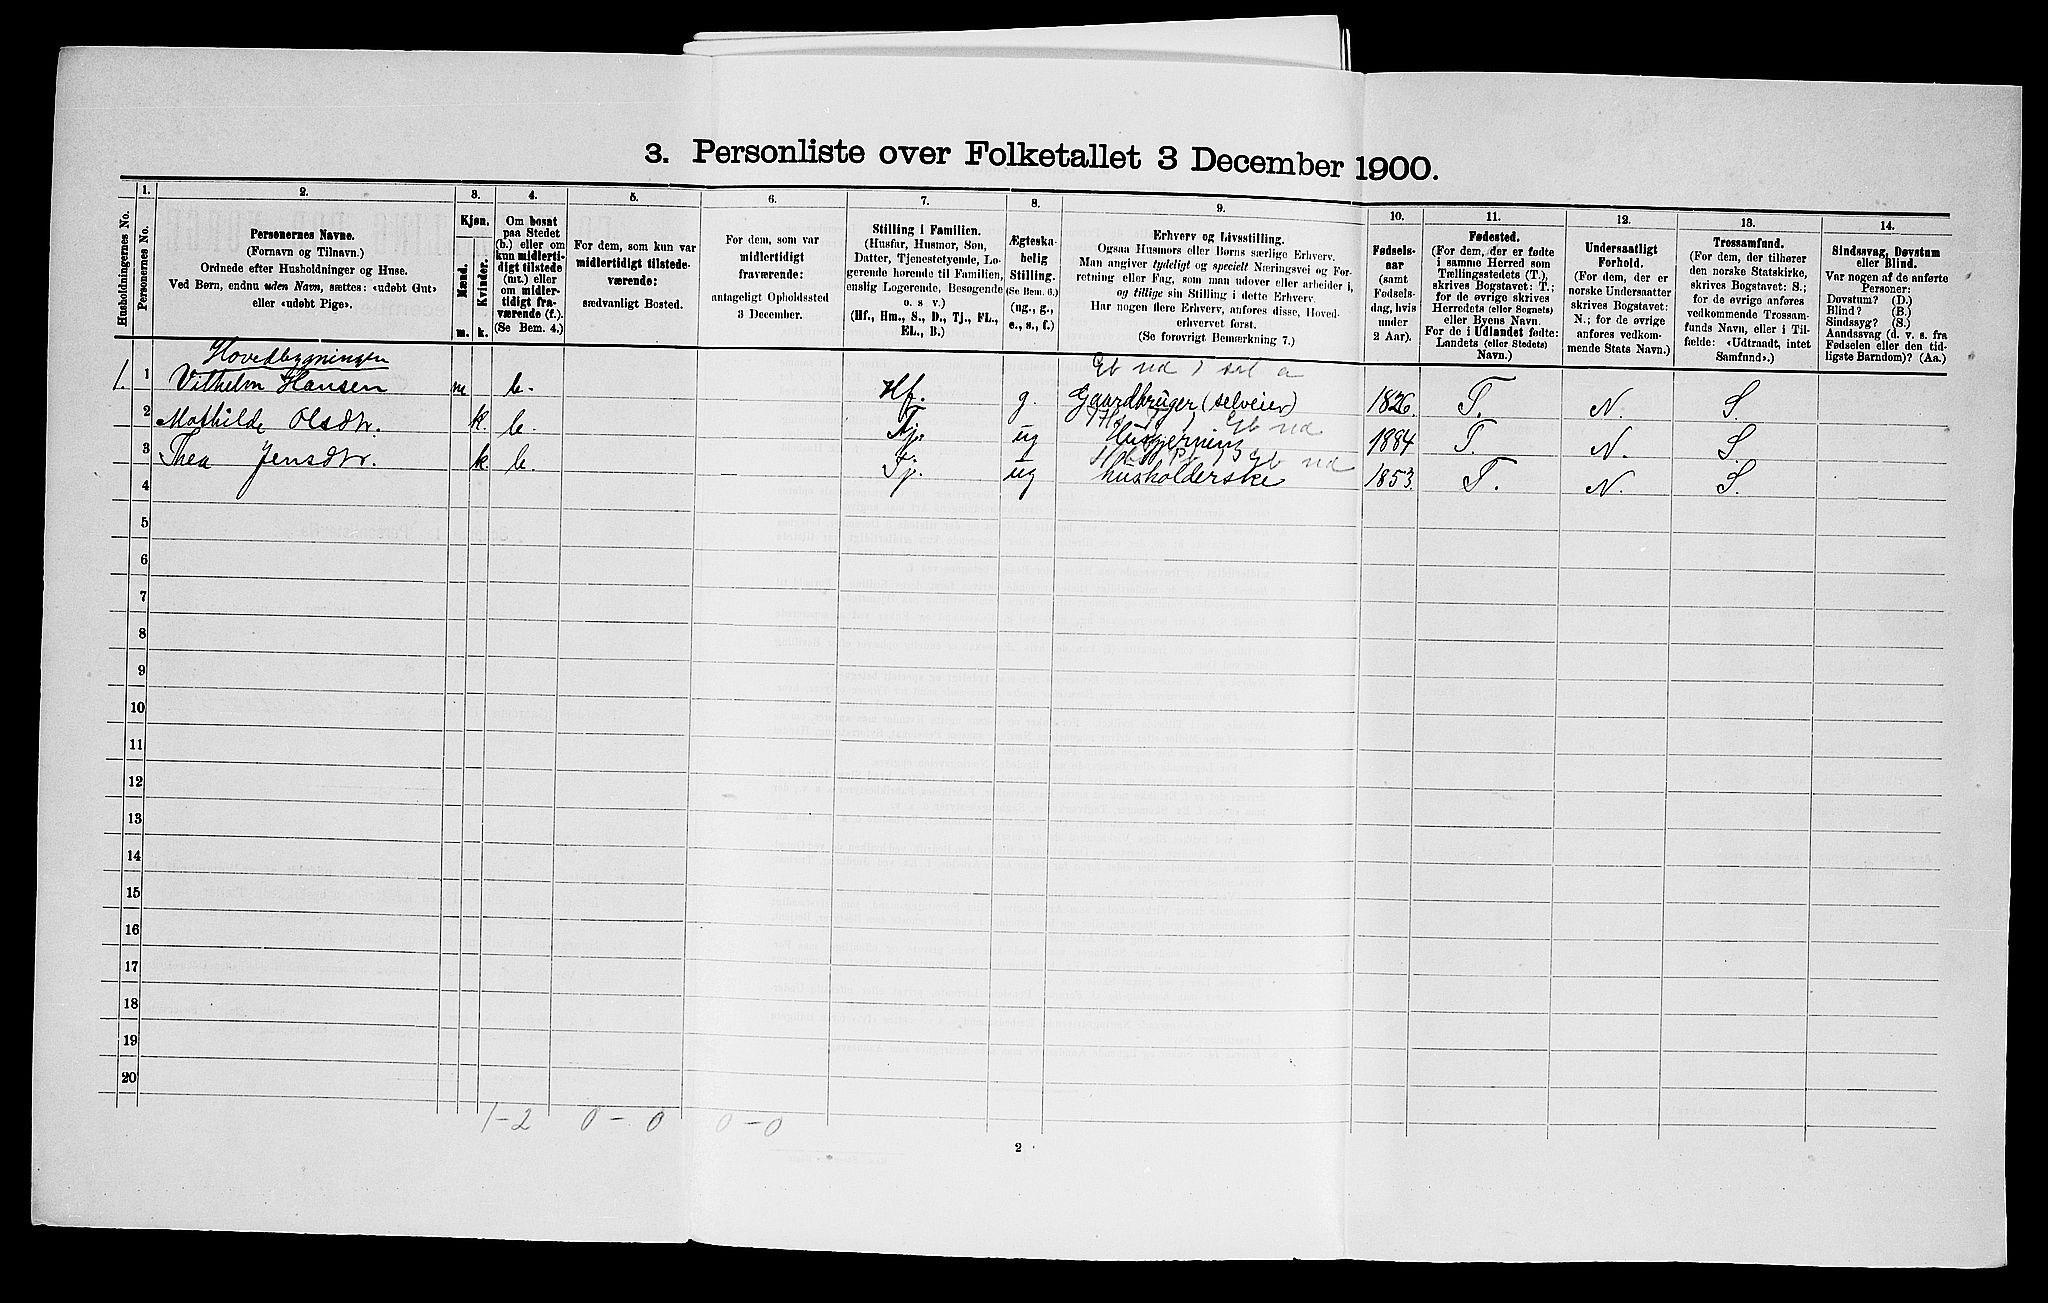 3. Personliste over Folketallet 3 December 1900.
Husholdningernes No.
1.
Personernes No.
2.
Personernes Navne.
(Fornavn og Tilnavn.)
Ordnede efter Husholdninger og Huse.
Ved Børn, endnu uden Navn, sættes: «udøbt Gut»
eller «udøbt Pige».
3.
Kjøn.
Mænd.
Kvinder.
m. k.
4.
Om bosat
paa Stedet
(b.) eller om
kun midlerti-
digt tilstede
(mt.) eller
om midler-
tidigt fra-
værende (f.).
(Se Bem. 4.)
5.
For dem, som kun var
midlertidigt tilstede-
værende:
sædvanligt Bosted.
6.
For dem, som var
midlertidigt
fraværende:
antageligt Opholdssted
3 December.
7.
Stilling i Familien.
(Husfar, Husmor, Søn,
Datter, Tjenestetyende, Lo-
gerende hørende til Familien,
enslig Logerende, Besøgende
o. s v.)
(Hf., Hm., S., D., Tj., FL.,
EL., B.)
8.
Ægteska-
belig
Stilling.
(Se Bem. 6.)
(ug., g.,
e., s., f.)
9.
Erhverv og Livsstilling.
Ogsaa Husmors eller Børns særlige Erhverv.
Man angiver tydeligt og specielt Næringsvei og For-
retning eller Fag, som man udover eller arbeider i,
og tillige sin Stilling i dette Erhverv.
Har nogen flere Erhverv, anføres disse, Hoved-
erhvervet først.
(Se forøvrigt Bemærkning 7.)
10.
Fødsels-
aar
(samt
Fødsels-
dag, hvis
under
2 Aar).
11.
Fødested.
(For dem, der er fødte
i samme Herred som
Tællingsstedets (T.),
skrives Bogstavet: T.;
for de øvrige skrives
Herredets (eller Sognets)
eller Byens Navn.
For de i Udlandet fødte:
Landets (eller Stedets)
Navn.)
12.
Undersaatligt
Forhold.
(For dem, der er
norske Undersaatter
skrives Bogstavet:
N.; for de øvrige
anføres vedkom-
mende Stats Navn.)
13.
Trossamfund.
(For dem, der tilhører
den norske Statskirke,
skrives Bogstavet: S.;
for de øvrige anføres
vedkommende Trossam-
funds Navn, eller i Til-
fælde: «Udtraadt, intet
Samfund».)
14.
Sindssvag, Døvstum
eller Blind.
Var nogen af de anførte
Personer:
Døvstum? (D.)
Blind? (B.)
Sindssyg? (S.)
Aandssvag (d. v. s. fra
Fødselen eller den tid-
ligste Barndom)? (Aa.)
Hovedbygningen
1. 1 Vilhelm Hansen m b. Hf. g. Gaardbruger (selveier) 1826. T. N. S.
2 Mathilde Olsdtr. k. b. Tj. ug Husgjerning 1884 T. N. S.
3 Thea Jensdtr. k b. Tj. ug husholderske 1853. T. N. S.
4
5
6
7
8
9
10
11
12
13
14
15
16
17
18
19
20
1-2 0-0 0-0
2